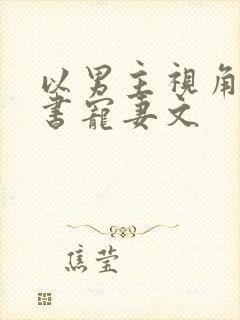 以男主視角
書寵妻文
焦莹